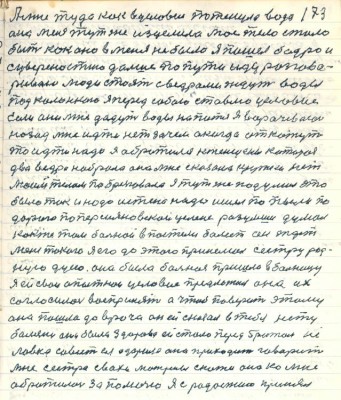 Ание туда как в условии потянула вода 173
она меня тут же изцелила мое тело стало
быть как оно в меня не было я пошел бодро и
с уверенностию дальше по пути иду разгова-
риваю люди стоят с ведрами ждут воды
под колонкою я перед собою ставлю условие
если они мне дадут воды напится я ворачиваюсь
назад мне идти незачем а когда откажут
то идти надо я обратился к женщине которая
два ведра набрала она мне сказала кружки нет
моим телом побрезговала я тут же подумал это
было так и надо истена надо шел по пыле по
дороге по персияновской целене разумом думал
как же там больной в постели болеет он ждет
меня такого я его до этого принемал сестру род-
ную душо, она была больная пришла в больницу
я ей свои опытное условие предложил она их
согласилась воспринять а чтоб поверить этому
она пошла до врача он ей сказал в тебя нету
болезни она была здорова ей стало перед братом не
ловко совесть ее одолила она приходит говорит
мне сестра сваха матрена снова она ко мне
обратилась за помощю я с радостию принял